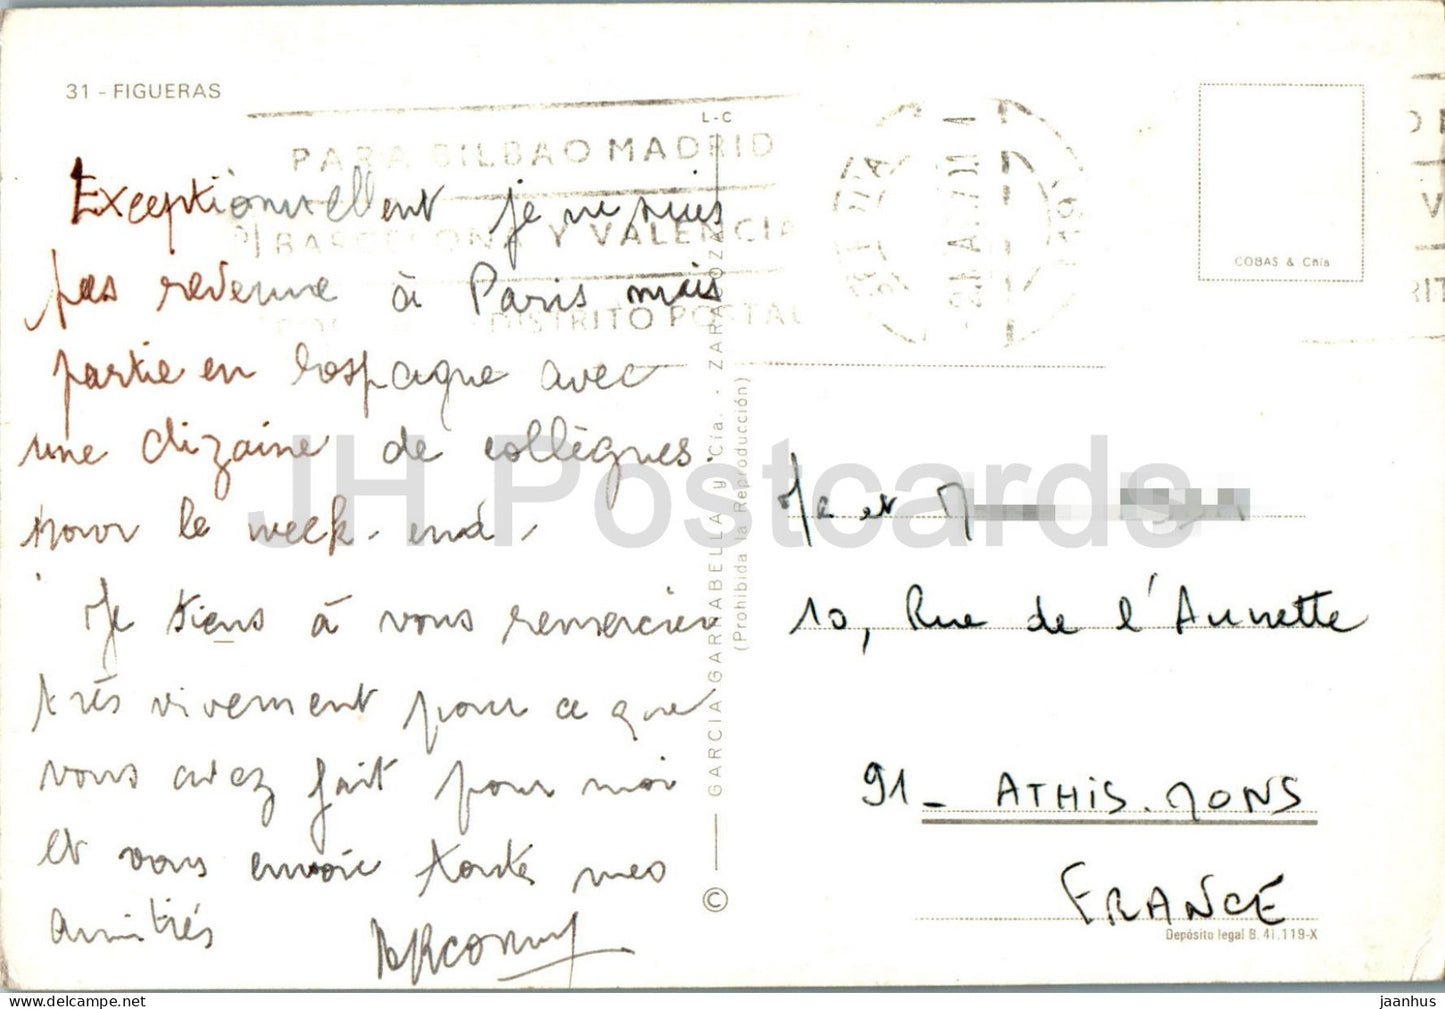 31 - FIGUERAS
L-C
PARA BILBAO MADRID
BARCELONA Y VALENCIA
DISTRITO POSTAL
COBAS & Cñía
Exceptionnellent je ne suis
pas revenue à Paris mais
partie en Lespagne avec
une dizaine de collègues.
pour le week-end.
Je tiens à vous remercier
très vivement pour ce que
vous avez fait pour moi
et vous envoie toutes mes
amitiés
© GARCIA GARRABELLA y Cía. - ZARAGOZA
(Prohibida la Reproducción)
JH Postcards
et M
10, Rue de l'Aunette
91 - ATHIS-MONS
FRANCE
Depósito legal B. 41.119-X
jaanhus | HipPostcard